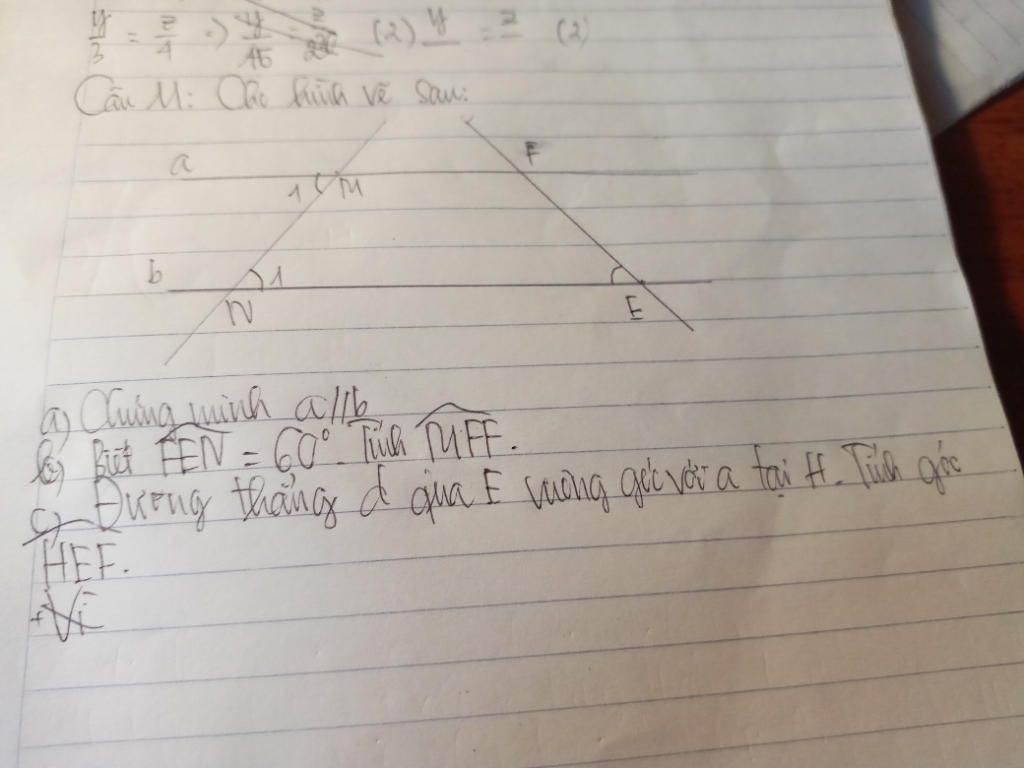 y/3 = z/4 => y/15 = z/20 (2) y = z (2)
Câu 11: Cho hình vẽ sau:
F
a
1 M
b
1
N
E
a) Chứng minh a//b
b) Biết FEN = 60°. Tính MFE.
c) Đường thẳng d qua E vuông góc với a tại H. Tính góc
HEF.
+ Vì